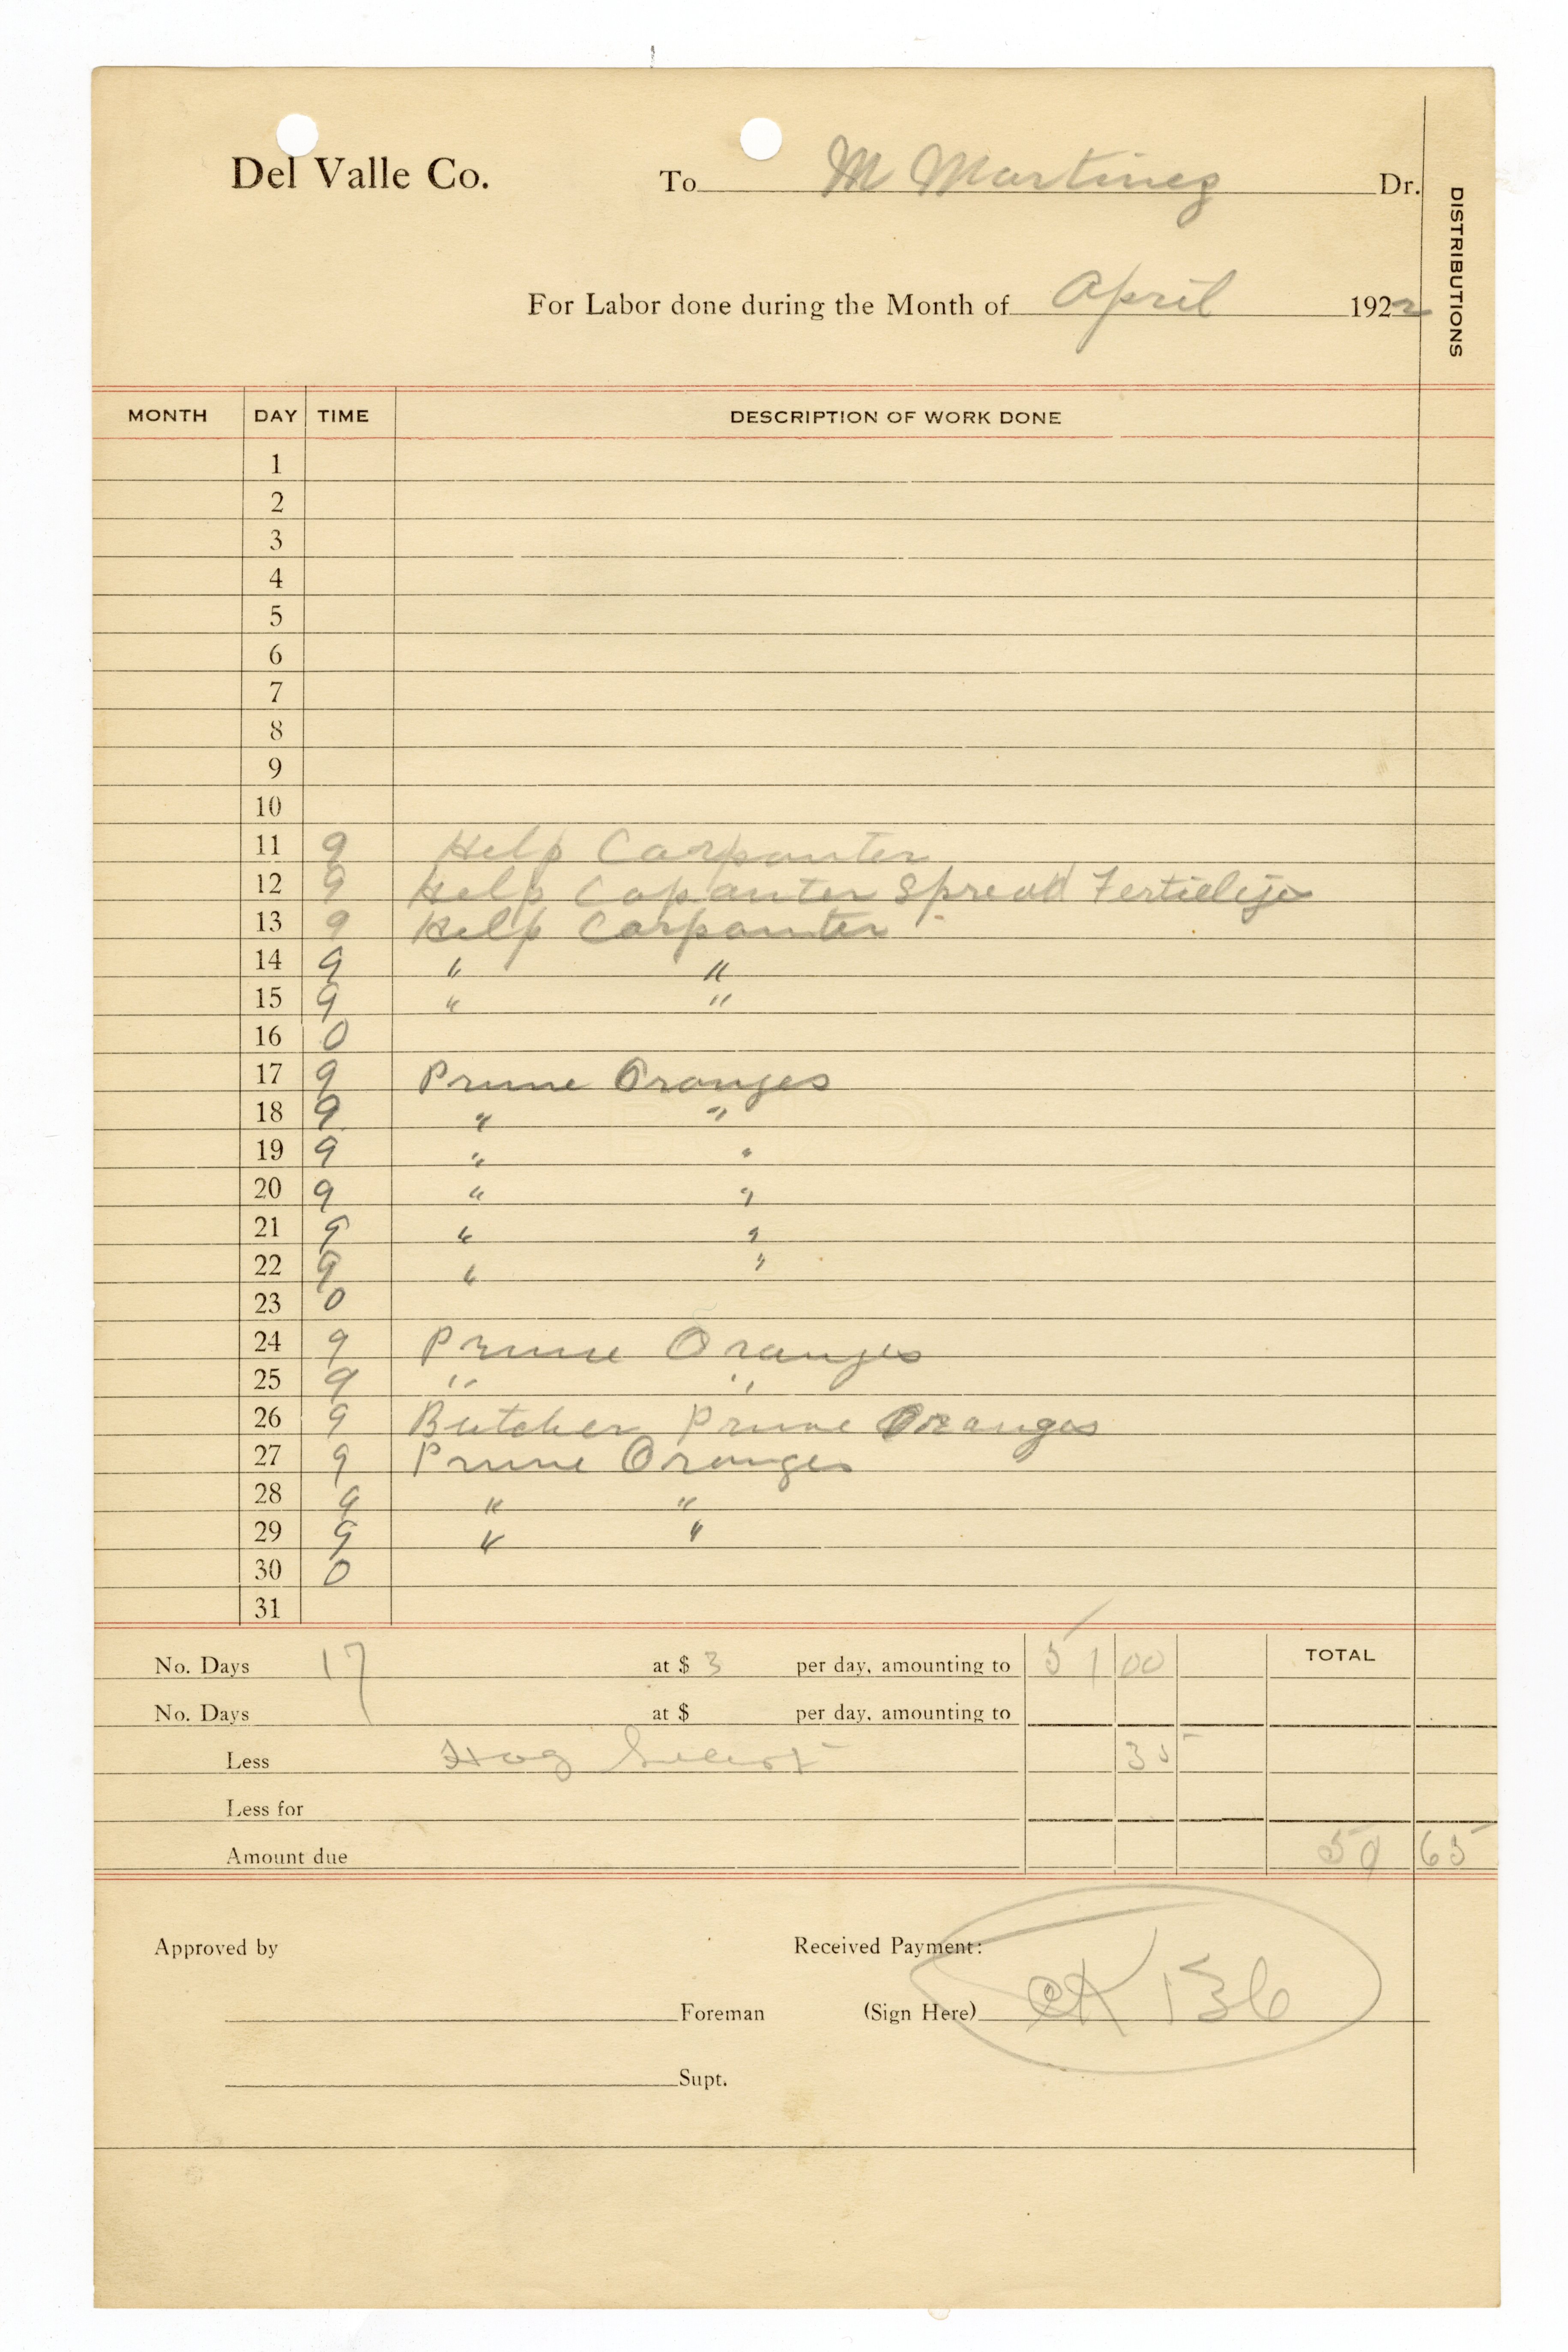 Del Valle Co. To M Martinez Dr.
DISTRIBUTIONS
For Labor done during the Month of April 1922
MONTH DAY TIME DESCRIPTION OF WORK DONE
1
2
3
4
5
6
7
8
9
10
11 9 Help Carpanter
12 9 Help Capanter Spread Fertielizer
13 9 Help Carpanter
14 9 " "
15 9 " "
16 0
17 9 Prune Oranges
18 9 " "
19 9 " "
20 9 " "
21 9 " "
22 9 " "
23 0
24 9 Prune Oranges
25 9 " "
26 9 Butcher Prune Oranges
27 9 Prune Oranges
28 9 " "
29 9 " "
30 0
31
No. Days 17 at $ 3 per day, amounting to 51 00 TOTAL
No. Days at $ per day, amounting to
Less Hog 35
Less for
Amount due 50 65
Approved by Received Payment:
Foreman (Sign Here) CK 136
Supt.